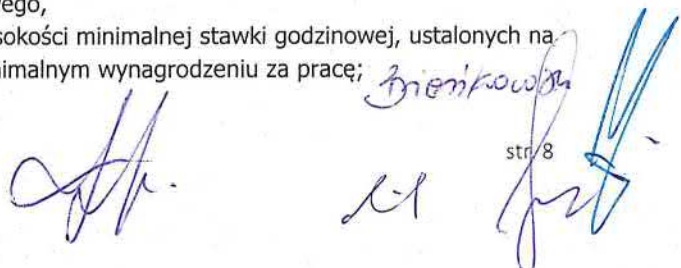 ego,
sokości minimalnej stawki godzinowej, ustalonych na
nimalnym wynagrodzeniu za pracę;
Bieńkowska
str 8